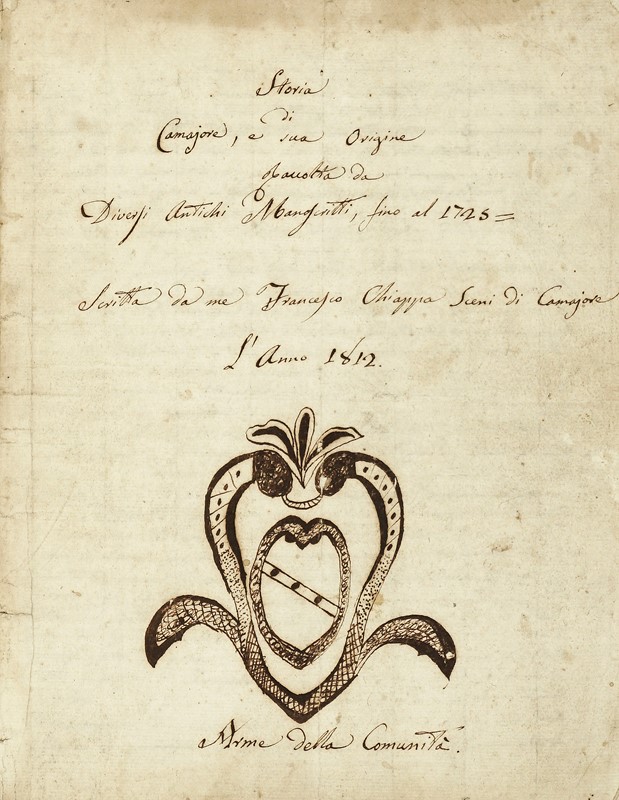 Storia
di
Camajore, e sua Origine
Racolta da
Diversi Antichi Manscritti, fino al 1725=
Scritta da me Francesco Chiappa Sceni di Camajore
L'Anno 1812.
Arme della Comunità.